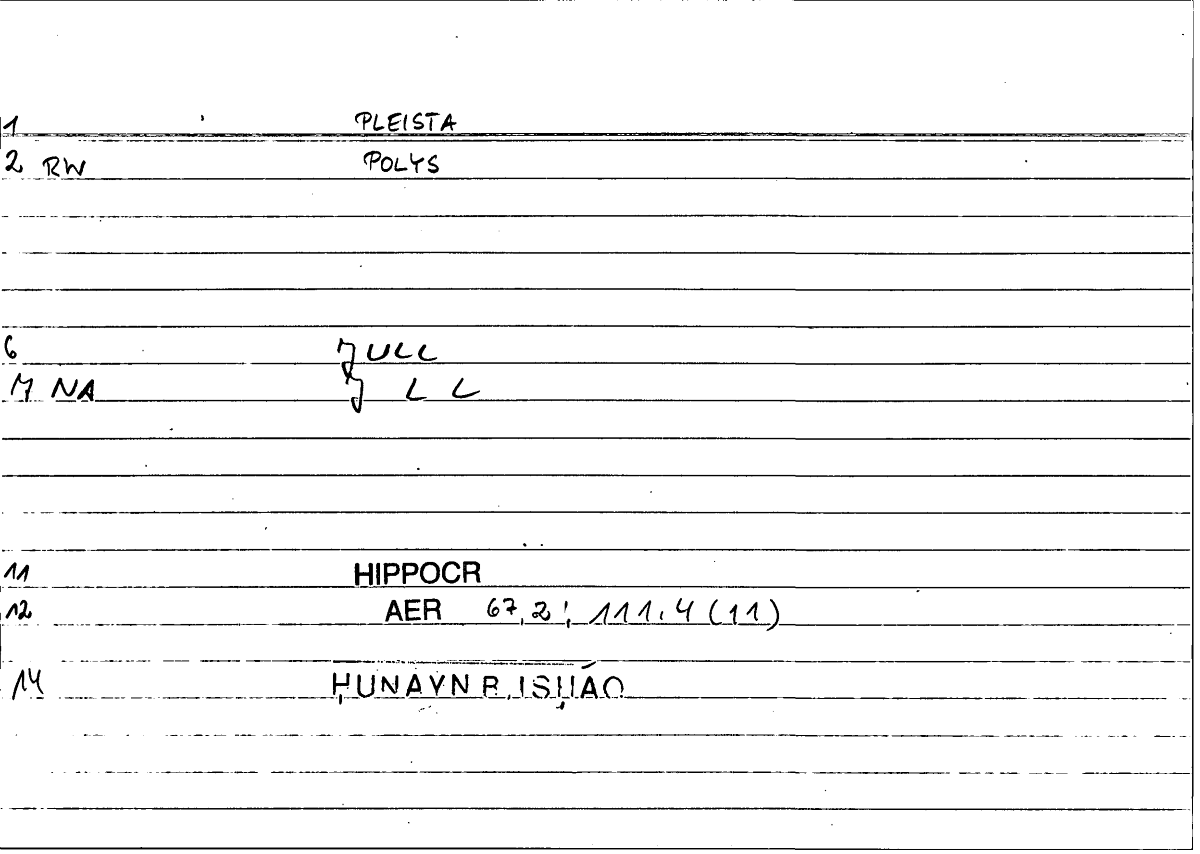 1 PLEISTA
2 RW POLYS
6 ȜULL
7 NA Ȝ L L
11 HIPPOCR
12 AER 67,2; 111.4 (11)
14 ḤUNAYN B. ISḤĀQ